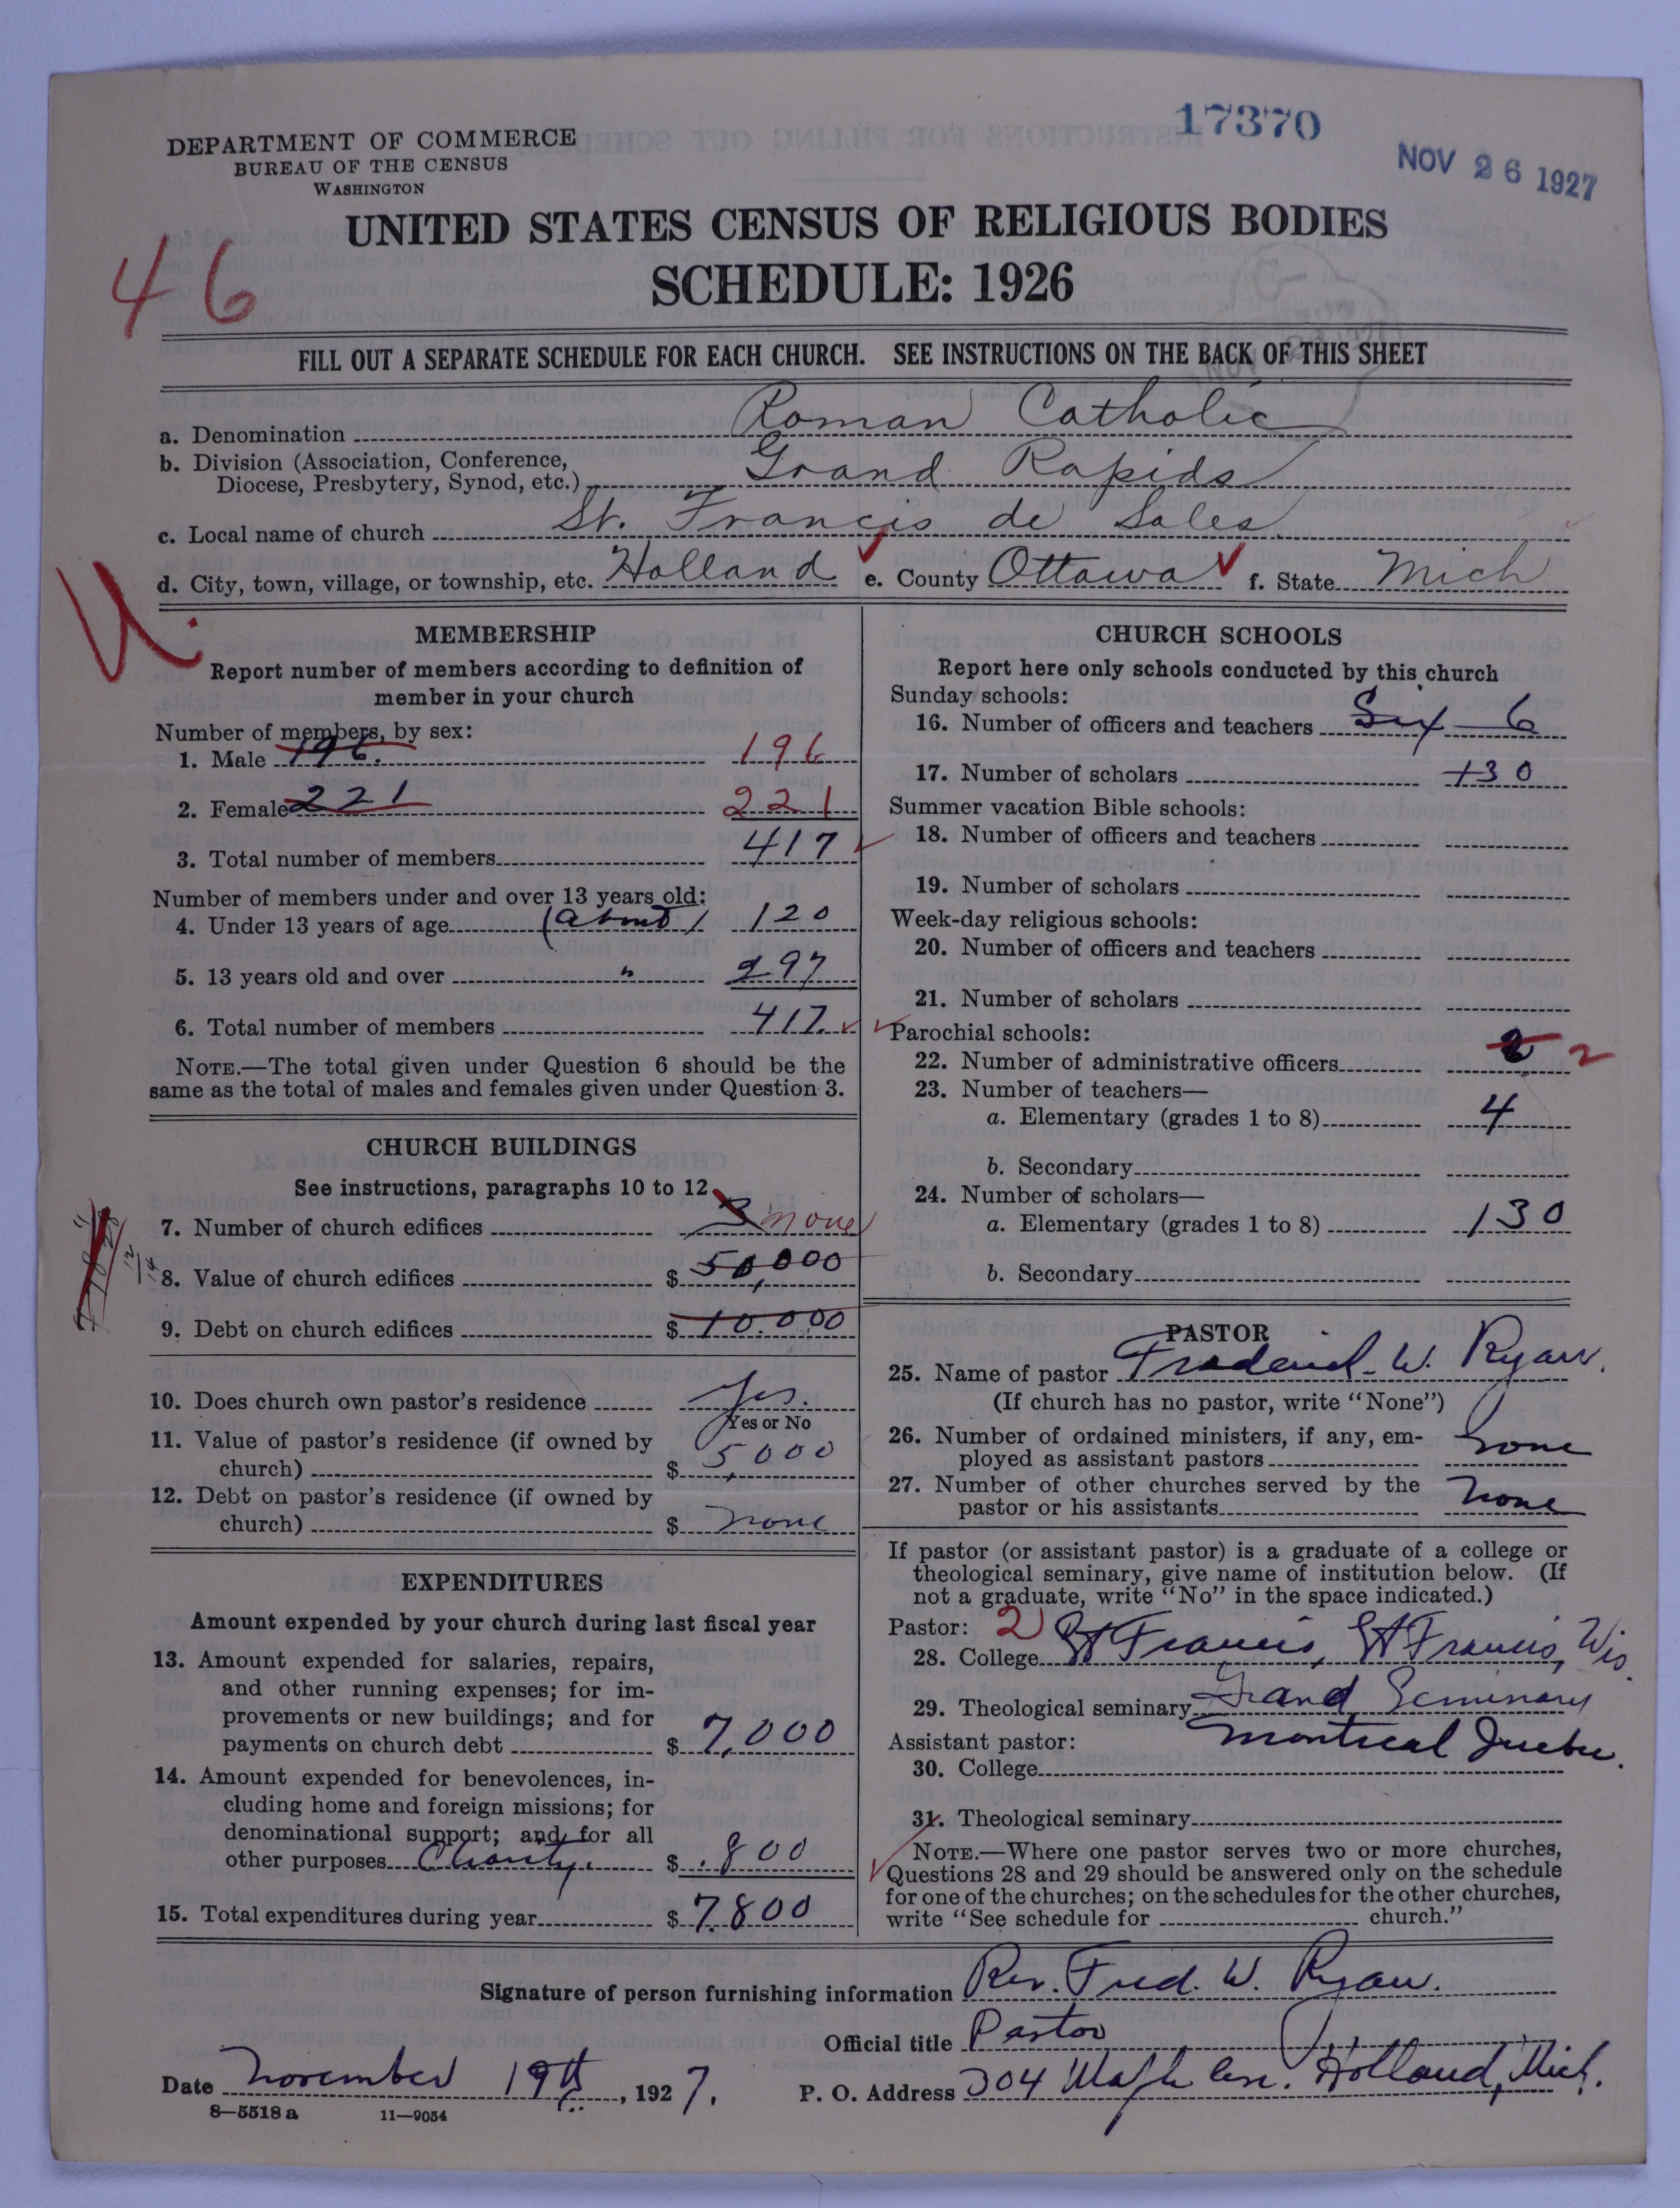 17370
NOV 26 1927
DEPARTMENT OF COMMERCE
BUREAU OF THE CENSUS
WASHINGTON
UNITED STATES CENSUS OF RELIGIOUS BODIES
SCHEDULE: 1926
46
FILL OUT A SEPARATE SCHEDULE FOR EACH CHURCH. SEE INSTRUCTIONS ON THE BACK OF THIS SHEET
a. Denomination Roman Catholic
b. Division (Association, Conference,
Diocese, Presbytery, Synod, etc.) Grand Rapids
c. Local name of church St. Francis de Sales
d. City, town, village, or township, etc. Holland e. County Ottawa f. State Mich
U.
MEMBERSHIP
Report number of members according to definition of
member in your church
Number of members, by sex:
1. Male 196. 196
2. Female 221 221
3. Total number of members 417
Number of members under and over 13 years old:
4. Under 13 years of age (about) 120
5. 13 years old and over " 297
6. Total number of members 417
NOTE.—The total given under Question 6 should be the
same as the total of males and females given under Question 3.
CHURCH BUILDINGS
See instructions, paragraphs 10 to 12
7. Number of church edifices 3 none
8. Value of church edifices $ 50,000
9. Debt on church edifices $ 10.000
10. Does church own pastor's residence Yes.
Yes or No
11. Value of pastor's residence (if owned by
church) $ 5,000
12. Debt on pastor's residence (if owned by
church) $ none
EXPENDITURES
Amount expended by your church during last fiscal year
13. Amount expended for salaries, repairs,
and other running expenses; for im-
provements or new buildings; and for
payments on church debt $ 7,000
14. Amount expended for benevolences, in-
cluding home and foreign missions; for
denominational support; and for all
other purposes Charity. $ 800
15. Total expenditures during year $ 7.800
CHURCH SCHOOLS
Report here only schools conducted by this church
Sunday schools:
16. Number of officers and teachers Six 6
17. Number of scholars 130
Summer vacation Bible schools:
18. Number of officers and teachers
19. Number of scholars
Week-day religious schools:
20. Number of officers and teachers
21. Number of scholars
Parochial schools:
22. Number of administrative officers 2 2
23. Number of teachers—
a. Elementary (grades 1 to 8) 4
b. Secondary
24. Number of scholars—
a. Elementary (grades 1 to 8) 130
b. Secondary
PASTOR
25. Name of pastor Frederick W. Ryan.
(If church has no pastor, write "None")
26. Number of ordained ministers, if any, em-
ployed as assistant pastors none
27. Number of other churches served by the
pastor or his assistants none
If pastor (or assistant pastor) is a graduate of a college or
theological seminary, give name of institution below. (If
not a graduate, write "No" in the space indicated.)
Pastor: 2
28. College St Francis, St Francis, Wis.
29. Theological seminary Grand Seminary
Assistant pastor: Montreal Quebec.
30. College
31. Theological seminary
NOTE.—Where one pastor serves two or more churches,
Questions 28 and 29 should be answered only on the schedule
for one of the churches; on the schedules for the other churches,
write "See schedule for church."
Signature of person furnishing information Rev. Fred. W. Ryan.
Official title Pastor
Date November 19th, 1927. P. O. Address 304 Maple Ave. Holland, Mich.
8—5518a 11—9054